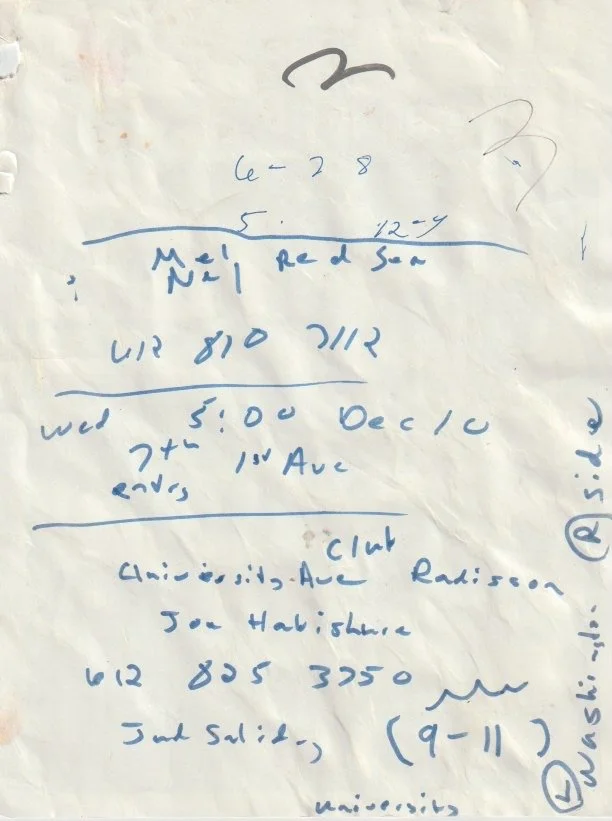 6-28
5. 12-4
Mel Red Sea
Nel
612 870 7112
Wed 5:00 Dec 10
7th 1st Ave
entry
Club
University Ave Radisson
Joe
612 825 3750
(9-11)
University
(L) Washington (R) side